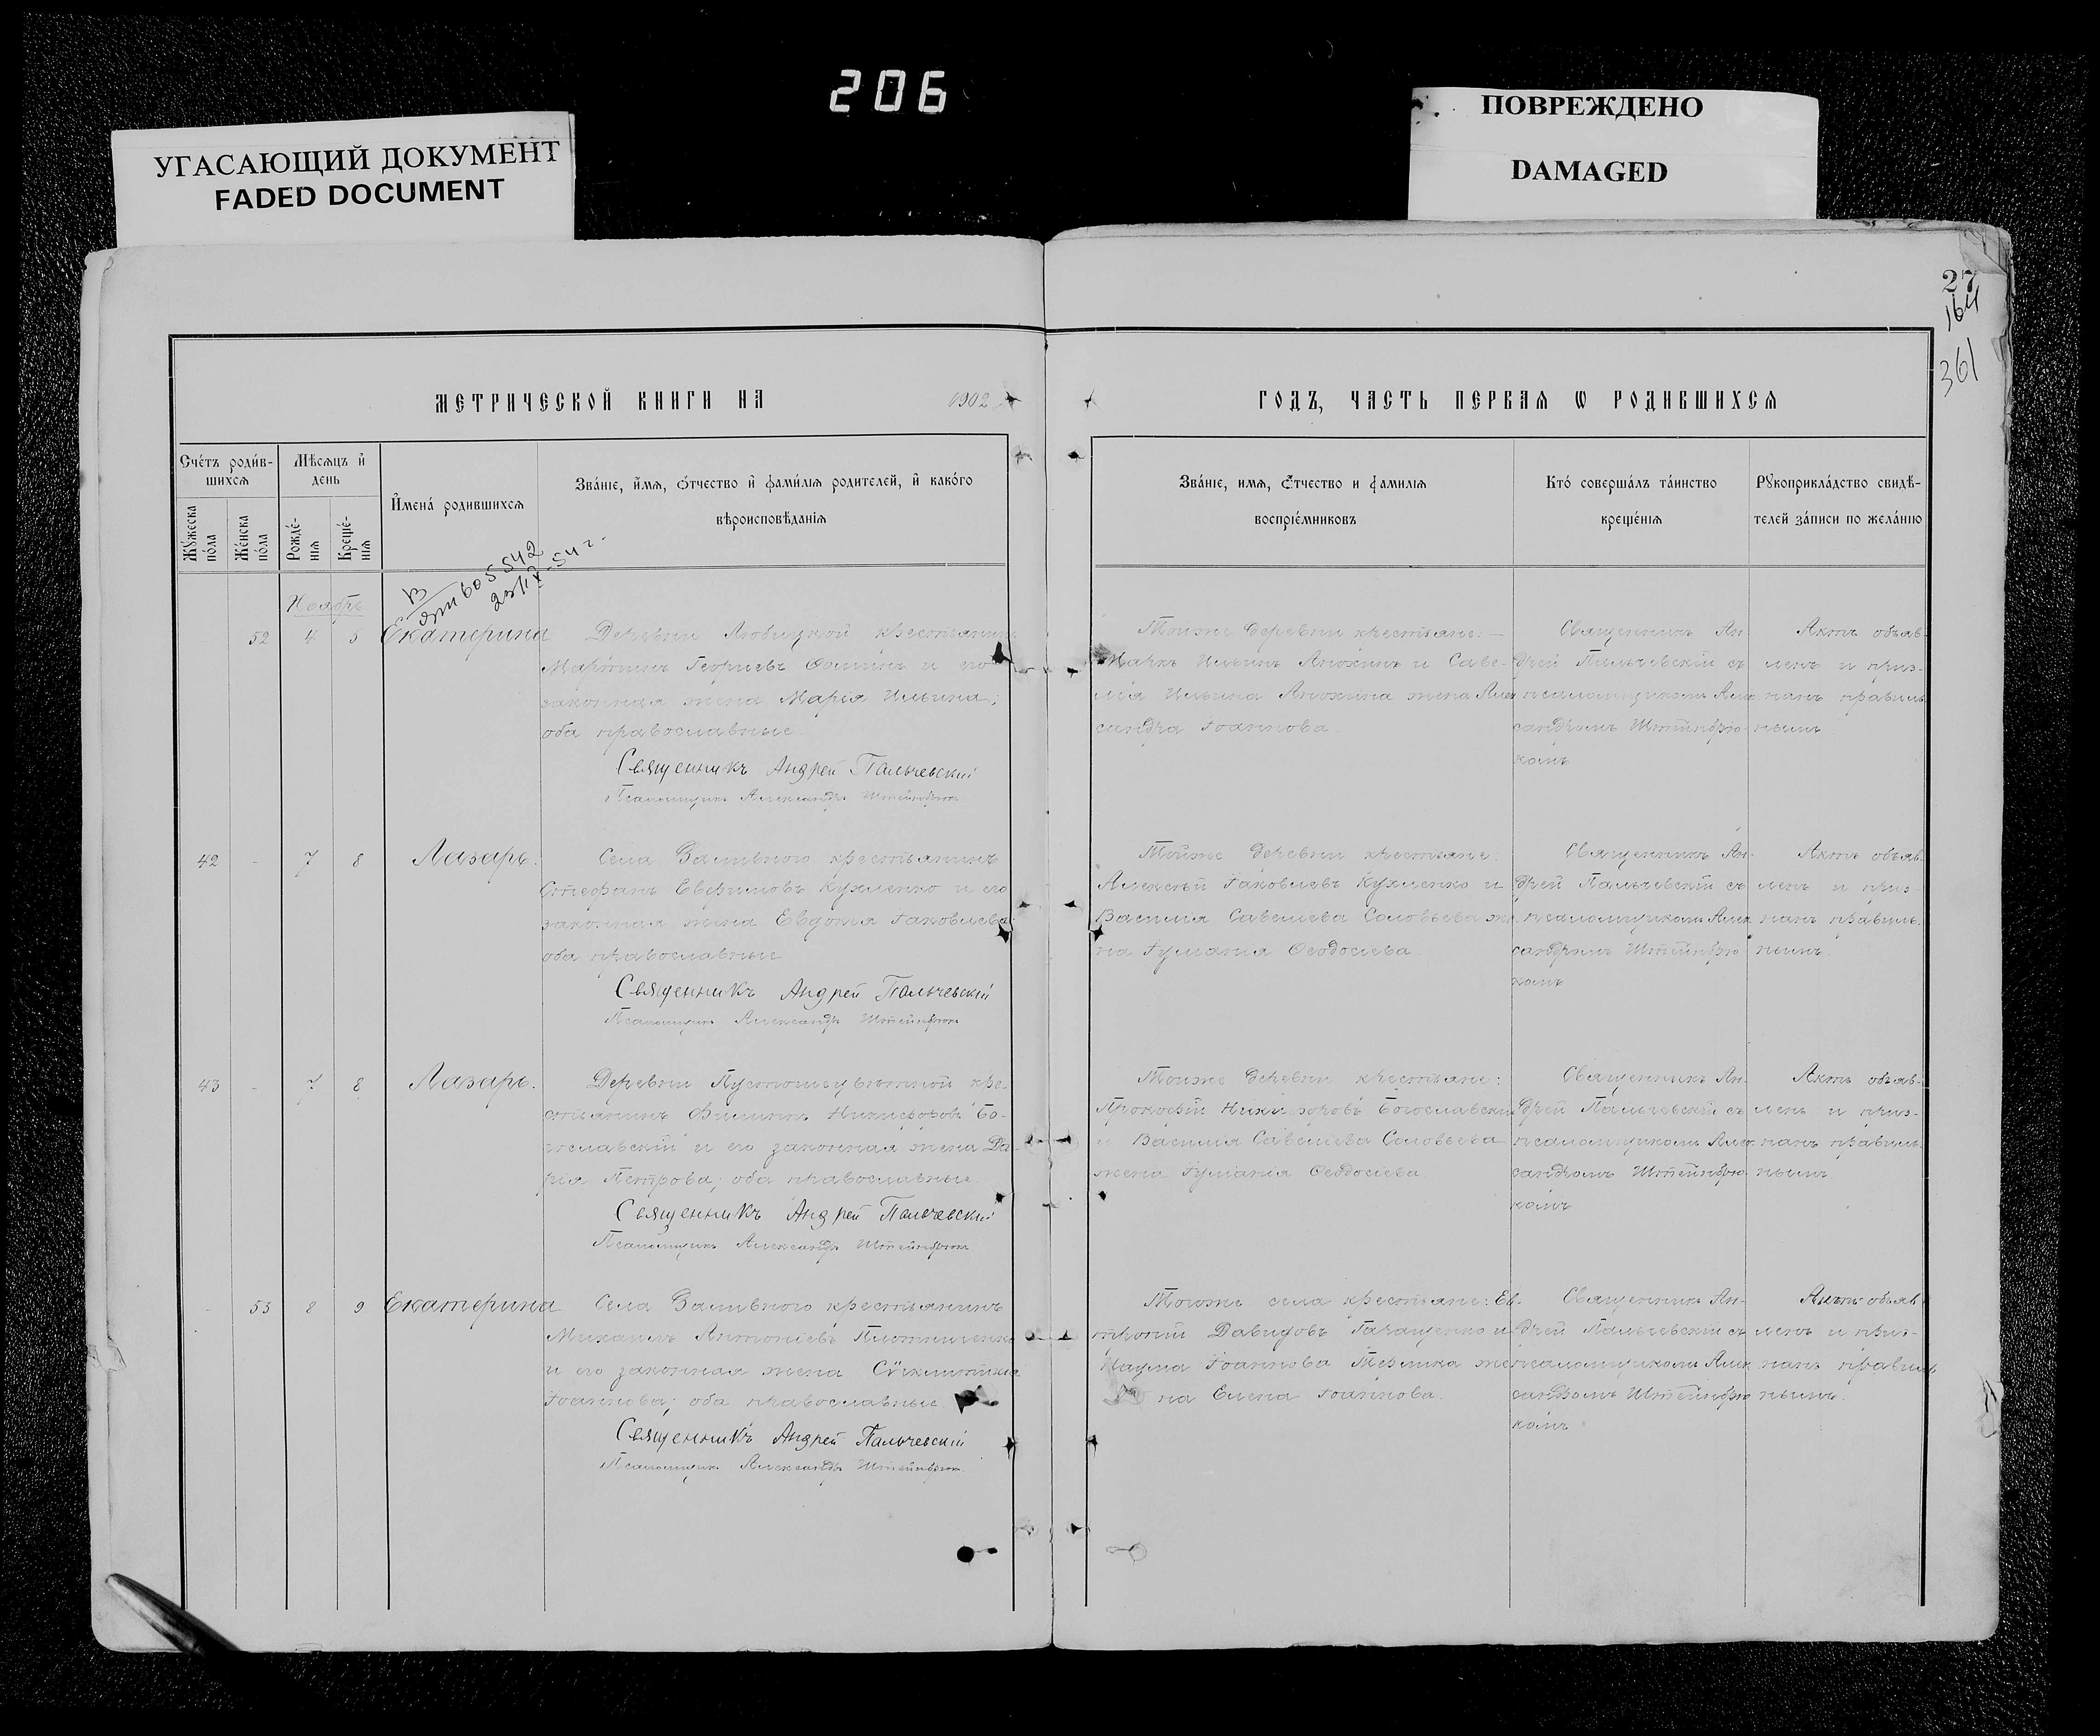 206
УГАСАЮЩИЙ ДОКУМЕНТ
FADED DOCUMENT
ПОВРЕЖДЕНО
DAMAGED
27
164
361
МЕТРИЧЕСКОЙ КНИГИ НА 1902
ГОДЪ, ЧАСТЬ ПЕРВАЯ Ѡ РОДИВШИХСѦ
Сче́тъ роди́в-
шихсѧ
Мѣ́сѧцъ и҆
день
Мꙋ́жеска
по́ла
Же́нска
по́ла
Рожде́-
нїѧ
Креще́-
нїѧ
И҆мена̀ родившихсѧ
Зва́нїе, и҆́мѧ, ѻ҆́тчество и҆ фами́лїѧ родителей, и҆ како́го
вѣроисповѣ́данїѧ
Зва́нїе, имѧ, ѻ҆́тчество и фамилїѧ
воспрїе́мниковъ
Кто̀ соверша́лъ та́инство
креще́нїѧ
Рꙋкоприкла́дство свидѣ́-
телей за́писи по жела́нїю
В
605542
23/IX-54 г.
Ноябрь
52 4 5 Екатерина
Деревни Любицкой крестьянинъ
Мартинъ Георгіевъ Ѳоминъ и его
законная жена Марія Ильина;
оба православные
Священникъ Андрей Пальчевскій
Псаломщикъ Александръ Штейнбрюк
Тойже деревни крестьяне:—
Маркъ Ильинъ Анохинъ и Саве-
лія Ильина Анохина жена Алек
сандра Іоаннова.
Священникъ Ан-
дрей Пальчевскій съ
псаломщикомъ Алек
сандромъ Штейнбрю-
комъ
Актъ объяв-
ленъ и приз-
нанъ правиль
нымъ
42 - 7 8 Лазарь.
Села Заливного крестьянинъ
Стефанъ Евфимовъ Кухленко и его
законная жена Евдокія Іаковлева;
оба православные
Священникъ Андрей Пальчевскій
Псаломщикъ Александръ Штейнбрюк
Тойже деревни крестьяне:
Алексѣй Іаковлевъ Кухленко и
Василія Савеліева Соловьева же
на Іуліанія Ѳеодосіева
Священникъ Ан-
дрей Пальчевскій съ
псаломщикомъ Алек
сандромъ Штейнбрю-
комъ
Актъ объяв-
ленъ и приз-
нанъ правиль-
нымъ.
43 - 7 8 Лазарь.
Деревни Пустошецвѣтной кре-
стьянинъ Филиппъ Никифоровъ Бо-
гославскій и его законная жена Да-
рія Петрова; оба православные
Священникъ Андрей Пальчевскій
Псаломщикъ Александръ Штейнбрюк
Тойже деревни крестьяне:
Прокофій Никифоровъ Богославскій
и Василія Савеліева Соловьева
жена Іуліанія Ѳеодосіева
Священникъ Ан-
дрей Пальчевскій съ
псаломщикомъ Алек
сандромъ Штейнбрю-
комъ
Актъ объяв-
ленъ и приз-
нанъ правиль-
нымъ
- 53 8 9 Екатерина
Села Заливного крестьянинъ
Михаилъ Антоніевъ
и его законная жена
Іоаннова; оба православные
Священникъ Андрей Пальчевскій
Псаломщикъ Александръ Штейнбрюк
Тогоже села крестьяне: Ев-
тропій Давидовъ Гаращенко и
Наума Іоаннова же
на Елена Іоаннова.
Священникъ Ан-
дрей Пальчевскій съ
псаломщикомъ Алек
сандромъ Штейнбрю
комъ
Актъ объяв-
ленъ и приз-
нанъ правиль
нымъ.